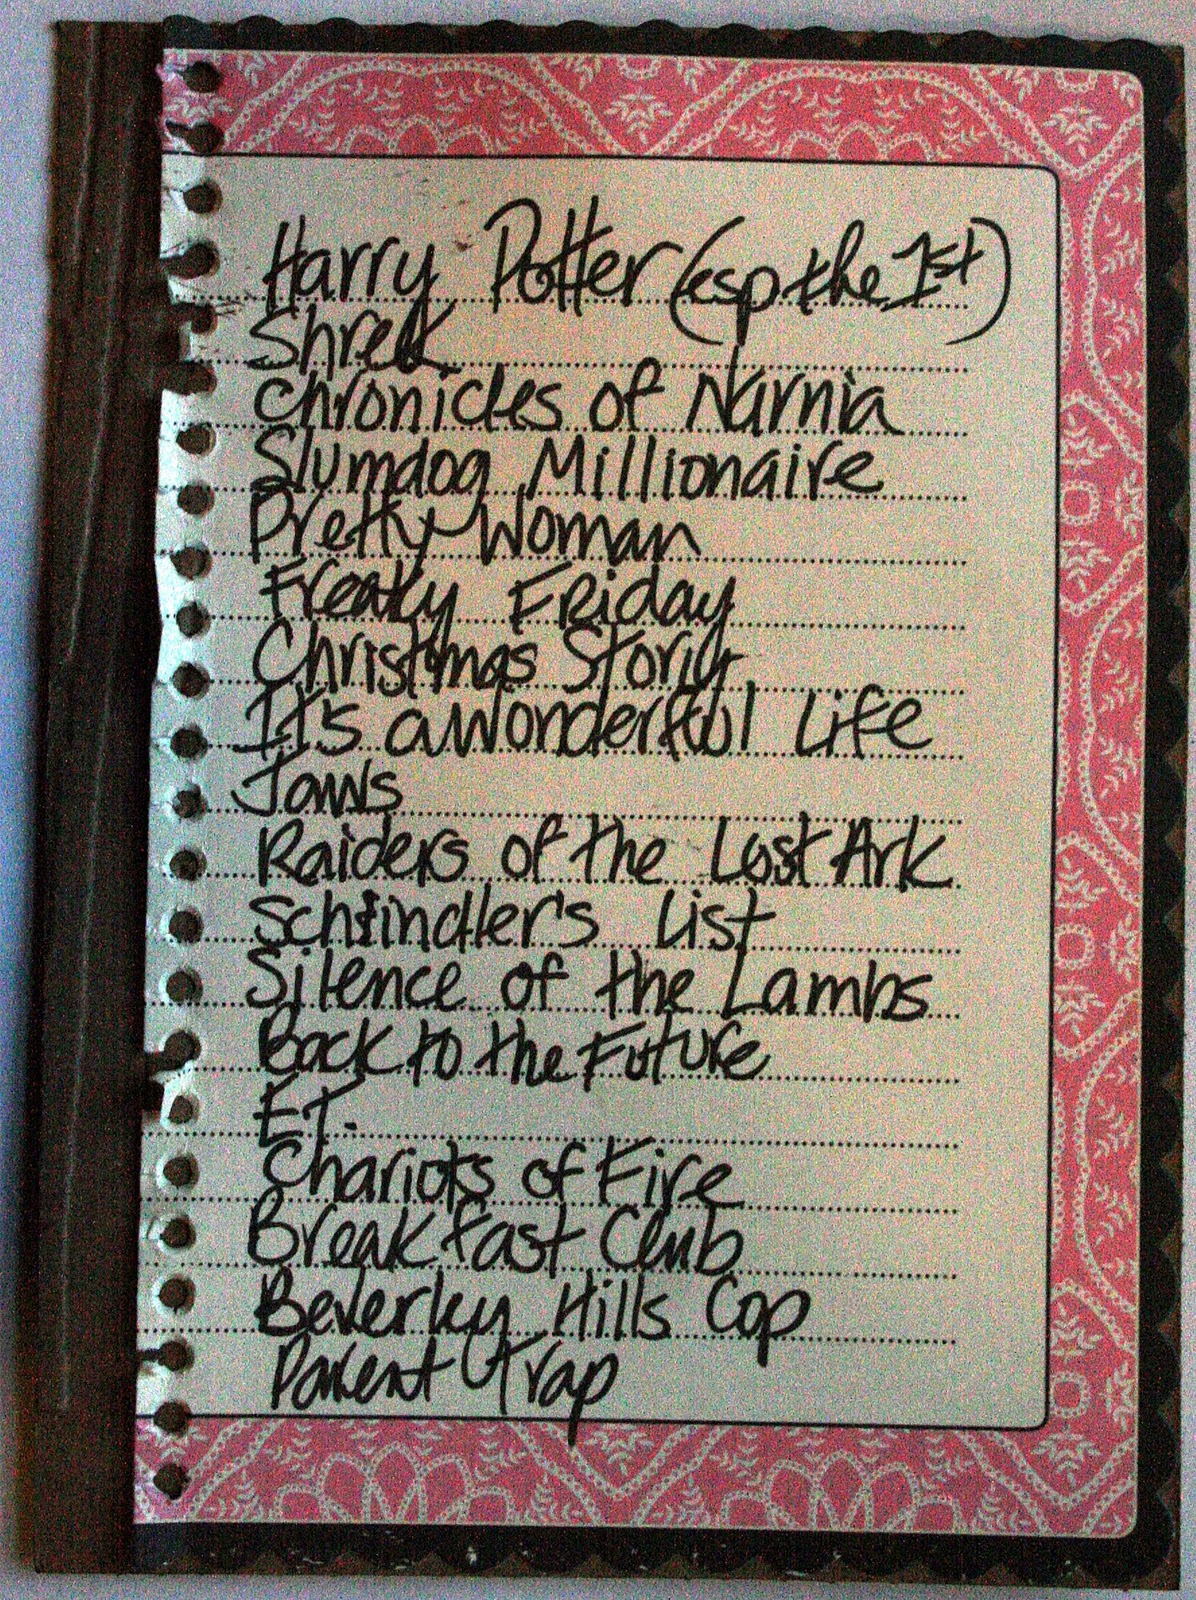 Harry Potter (esp the 1st)
Shrek
Chronicles of Narnia
Slumdog Millionaire
Pretty Woman
Freaky Friday
Christmas Story
It's a Wonderful Life
Jaws
Raiders of the Lost Ark
Schindler's List
Silence of the Lambs
Back to the Future
E.T.
Chariots of Fire
Breakfast Club
Beverley Hills Cop
Parent Trap